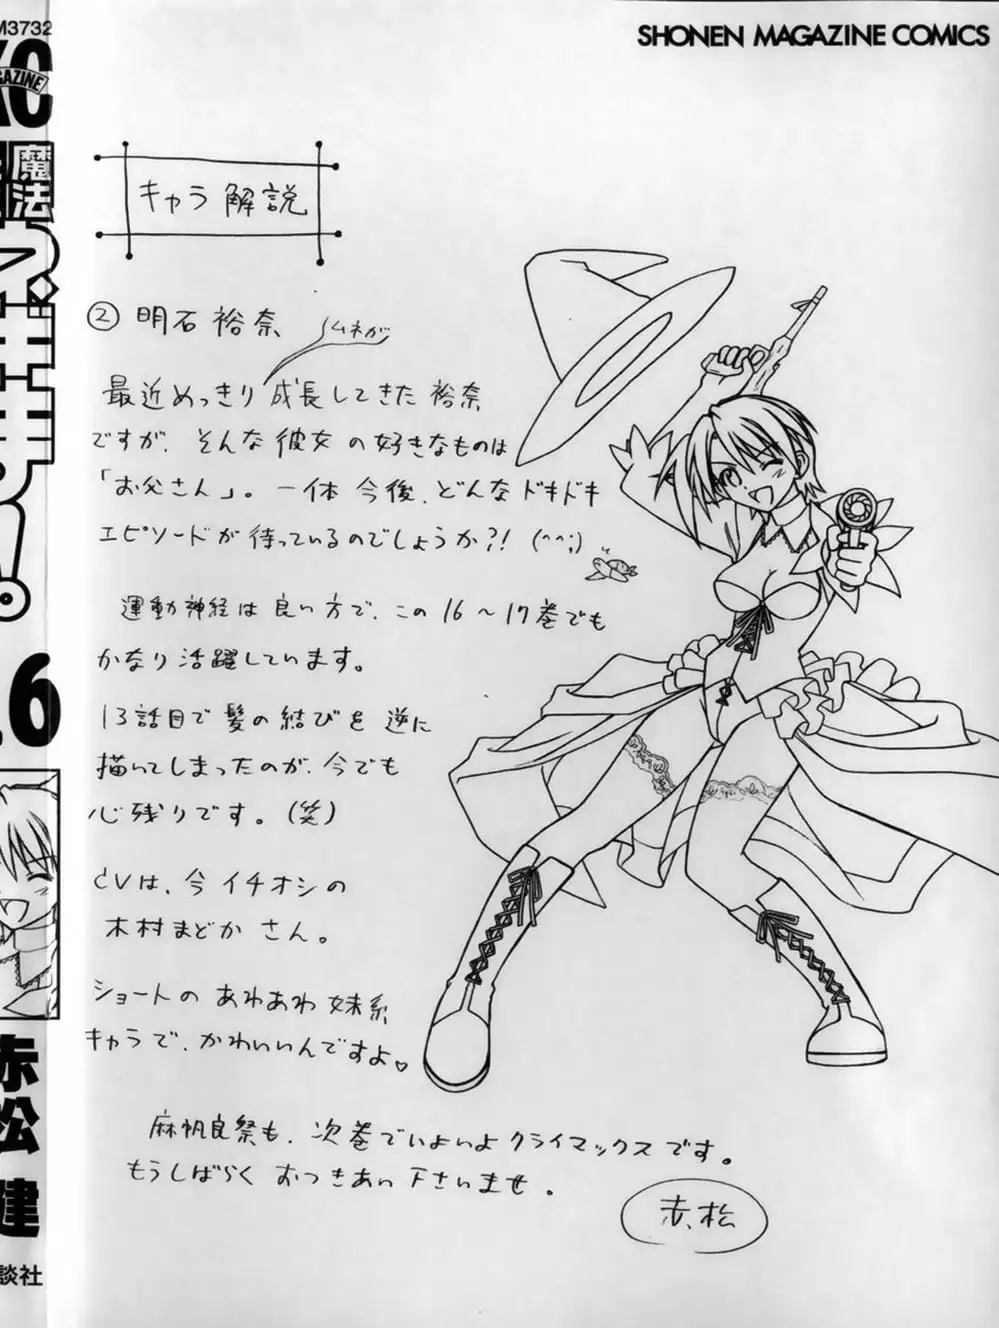 SHONEN MAGAZINE COMICS
M3732
KC
魔法
ネギま!
16
赤松健
談社
キャラ解説
② 明石裕奈
ムネが
最近めっきり成長してきた裕奈
ですが、そんな彼女の好きなものは
「お父さん」。一体今後、どんなドキドキ
エピソードが待っているのでしょうか?! (^^;)
運動神経は良い方で、この16〜17巻でも
かなり活躍しています。
13話目で髪の結びを逆に
描いてしまったのが、今でも
心残りです。(笑)
CVは、今イチオシの
木村まどかさん。
ショートのあわあわ妹系
キャラで、かわいいんですよ♡
麻帆良祭も、次巻でいよいよクライマックスです。
もうしばらくおつきあい下さいませ。
赤松